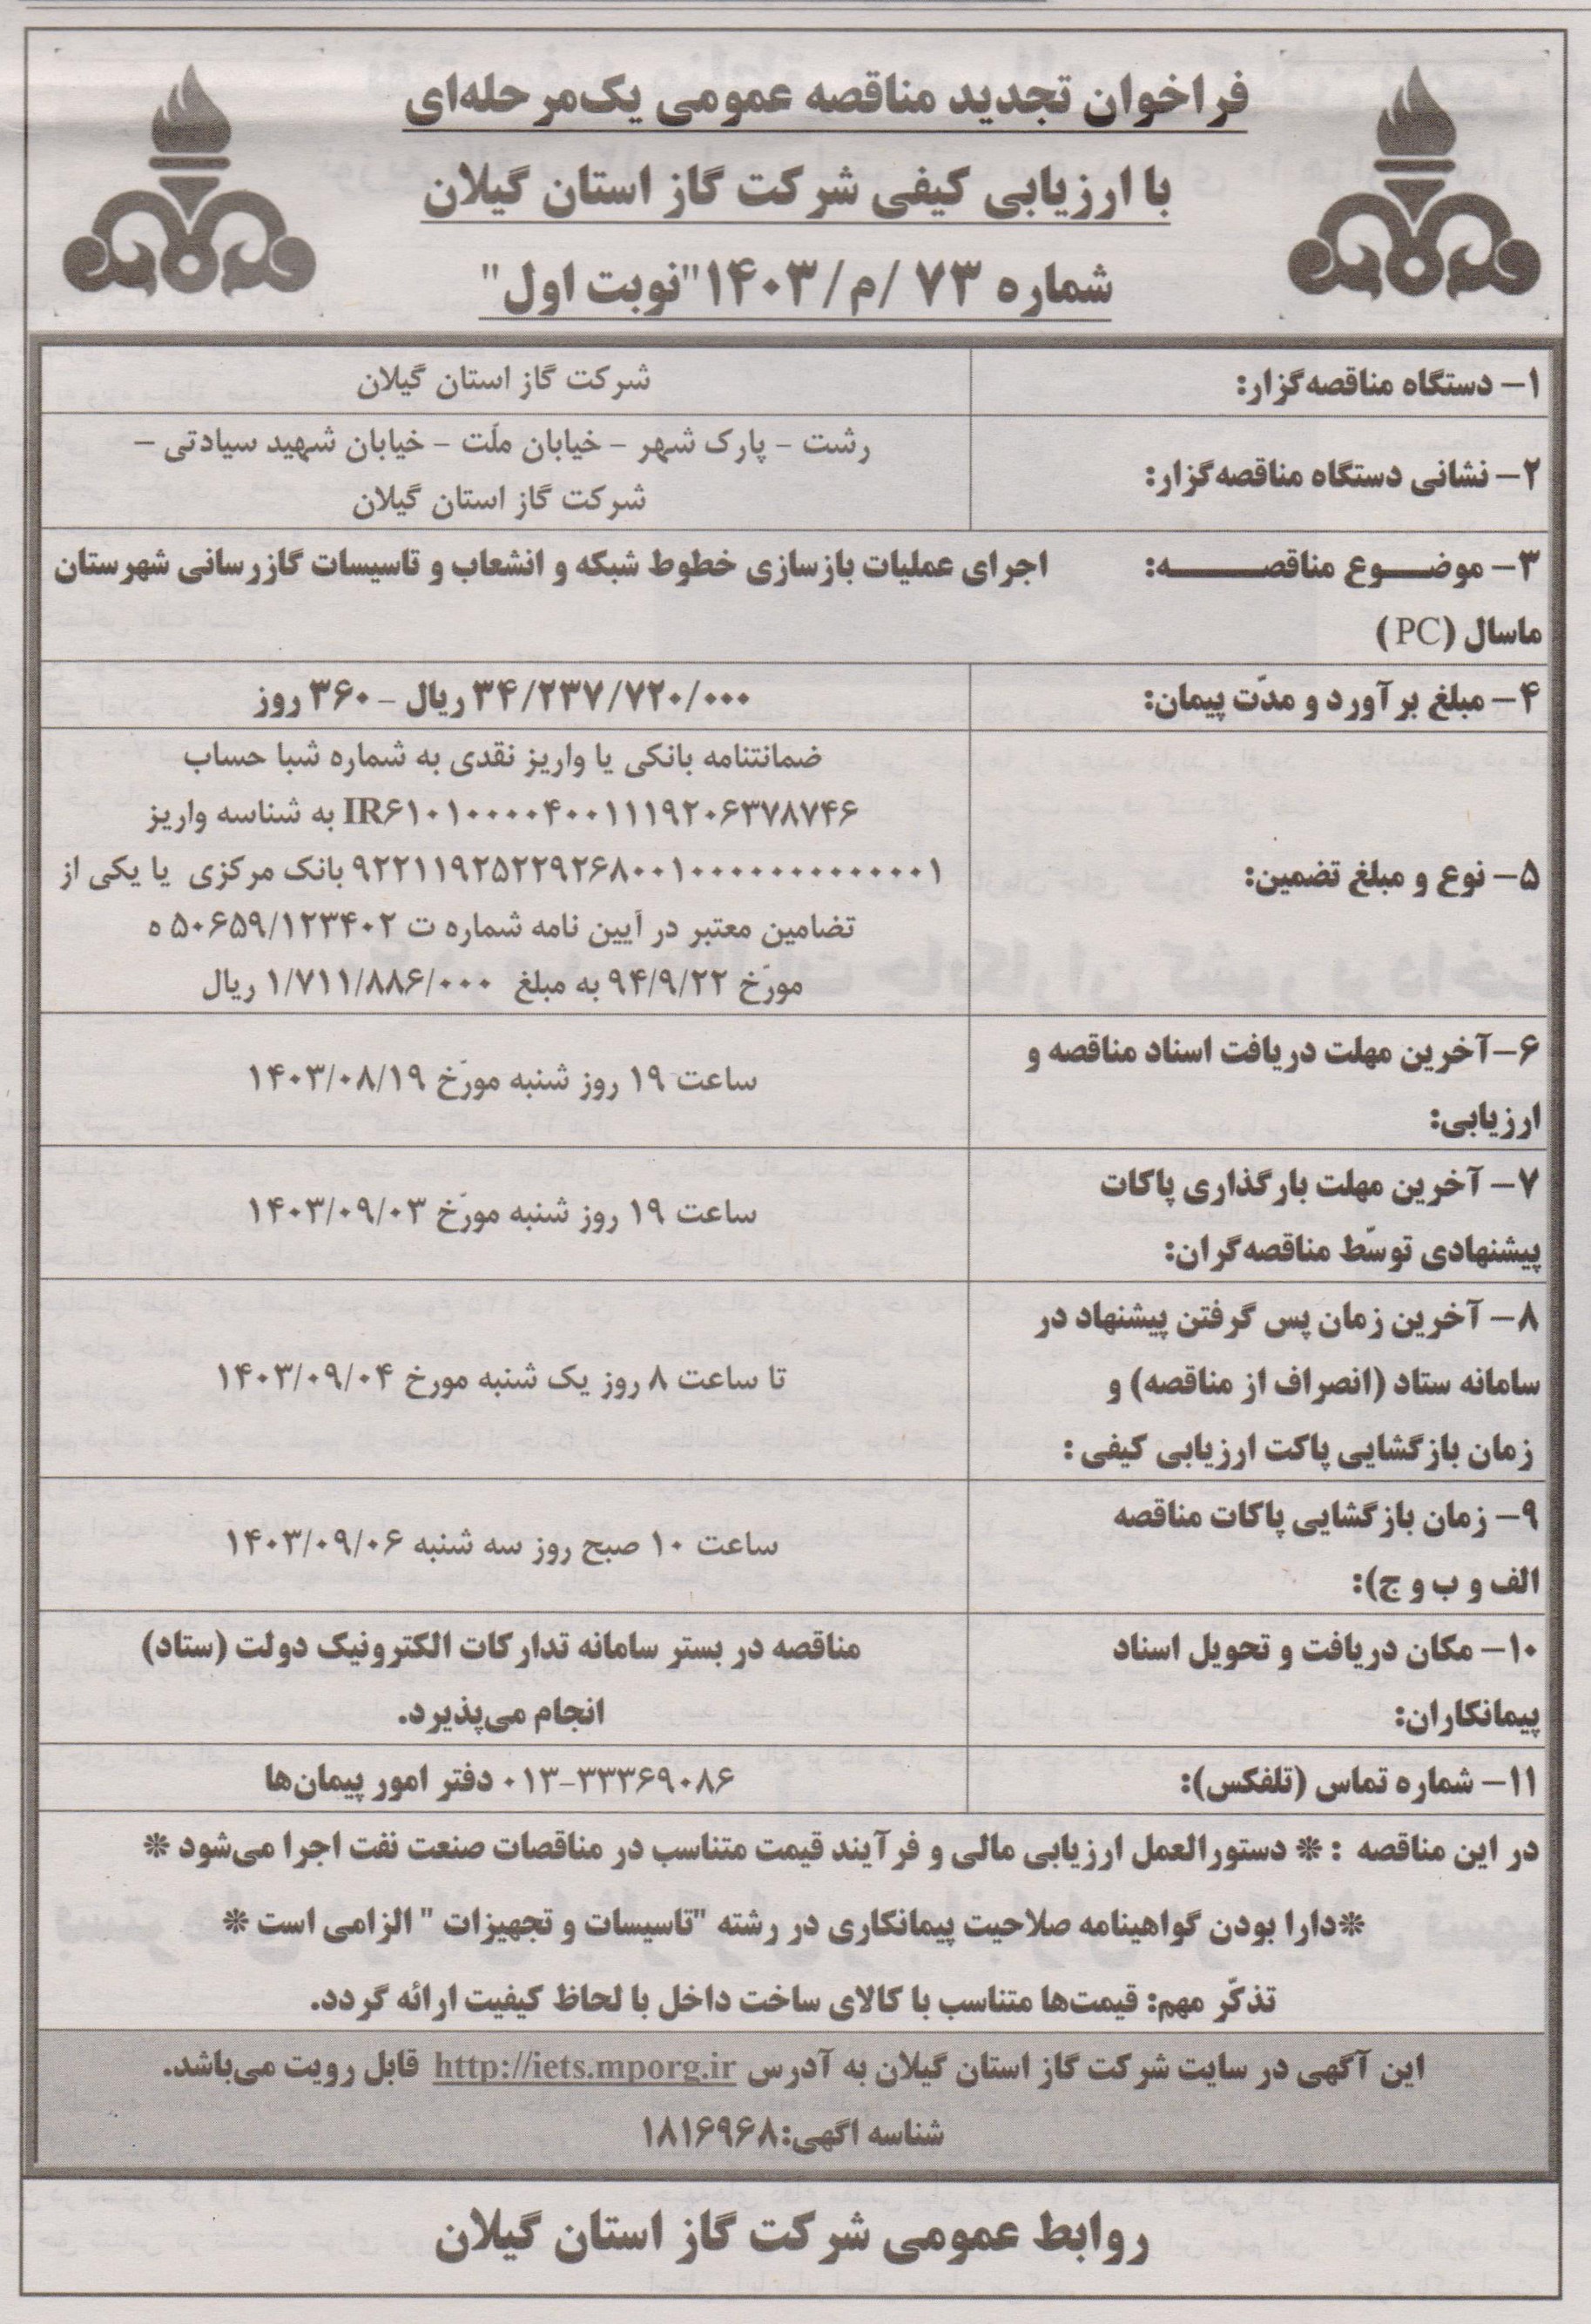 فراخوان تجدید مناقصه عمومی یک‌مرحله‌ای
با ارزیابی کیفی شرکت گاز استان گیلان
شماره ۷۳ /م/۱۴۰۳"نوبت اول"
۱– دستگاه مناقصه‌گزار:
شرکت گاز استان گیلان
۲– نشانی دستگاه مناقصه‌گزار:
رشت – پارک شهر – خیابان ملّت – خیابان شهید سیادتی –
شرکت گاز استان گیلان
۳– موضـــوع مناقصـــــــه: اجرای عملیات بازسازی خطوط شبکه و انشعاب و تاسیسات گازرسانی شهرستان
ماسال (PC)
۴– مبلغ برآورد و مدّت پیمان:
۳۴/۲۳۷/۷۲۰/۰۰۰ ریال – ۳۶۰ روز
۵– نوع و مبلغ تضمین:
ضمانتنامه بانکی یا واریز نقدی به شماره شبا حساب
IR۶۱۰۱۰۰۰۰۴۰۰۱۱۱۹۲۰۶۳۷۸۷۴۶ به شناسه واریز
۹۲۲۱۱۹۲۵۲۲۹۲۶۸۰۰۱۰۰۰۰۰۰۰۰۰۰۰۰۰۱ بانک مرکزی یا یکی از
تضامین معتبر در آیین نامه شماره ت ۵۰۶۵۹/۱۲۳۴۰۲ ه
مورّخ ۹۴/۹/۲۲ به مبلغ ۱/۷۱۱/۸۸۶/۰۰۰ ریال
۶–آخرین مهلت دریافت اسناد مناقصه و
ارزیابی:
ساعت ۱۹ روز شنبه مورّخ ۱۴۰۳/۰۸/۱۹
۷– آخرین مهلت بارگذاری پاکات
پیشنهادی توسّط مناقصه‌گران:
ساعت ۱۹ روز شنبه مورّخ ۱۴۰۳/۰۹/۰۳
۸– آخرین زمان پس گرفتن پیشنهاد در
سامانه ستاد (انصراف از مناقصه) و
زمان بازگشایی پاکت ارزیابی کیفی :
تا ساعت ۸ روز یک شنبه مورخ ۱۴۰۳/۰۹/۰۴
۹– زمان بازگشایی پاکات مناقصه
الف و ب و ج):
ساعت ۱۰ صبح روز سه شنبه ۱۴۰۳/۰۹/۰۶
۱۰– مکان دریافت و تحویل اسناد
پیمانکاران:
مناقصه در بستر سامانه تدارکات الکترونیک دولت (ستاد)
انجام می‌پذیرد.
۱۱– شماره تماس (تلفکس):
۰۱۳–۳۳۳۶۹۰۸۶ دفتر امور پیمان‌ها
در این مناقصه : ❊ دستورالعمل ارزیابی مالی و فرآیند قیمت متناسب در مناقصات صنعت نفت اجرا می‌شود ❊
❊دارا بودن گواهینامه صلاحیت پیمانکاری در رشته "تاسیسات و تجهیزات " الزامی است ❊
تذکّر مهم: قیمت‌ها متناسب با کالای ساخت داخل با لحاظ کیفیت ارائه گردد.
این آگهی در سایت شرکت گاز استان گیلان به آدرس http://iets.mporg.ir قابل رویت می‌باشد.
شناسه اگهی:۱۸۱۶۹۶۸
روابط عمومی شرکت گاز استان گیلان